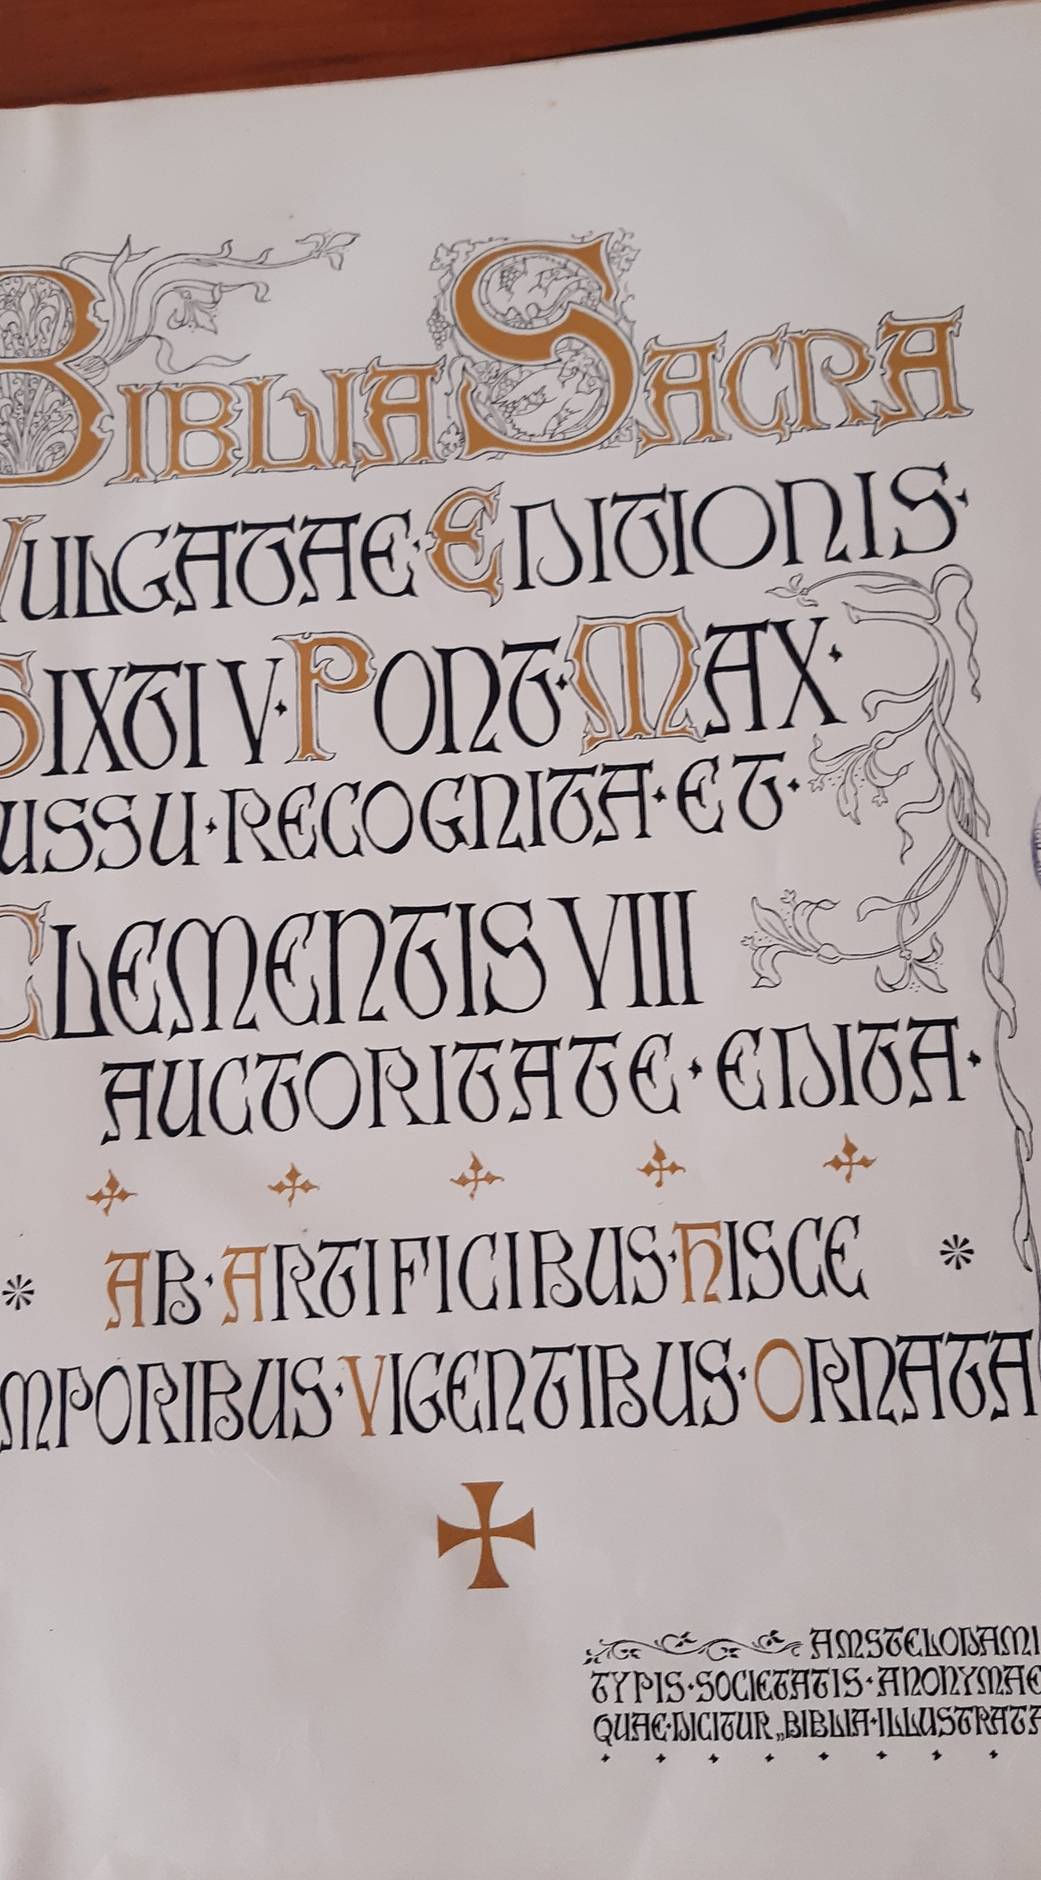 BIBLIA SACRA
VULGATAE · EDITIONIS ·
SIXTI V · PONT · MAX ·
USSU · RECOGNITA · ET ·
CLEMENTIS VIII
AUCTORITATE · EDITA ·
AB · ARTIFICIBUS · HISCE
MPORIBUS · VIGENTIBUS · ORNATA
AMSTELODAMI
TYPIS · SOCIETATIS · ANONYMAE
QUAE · DICITUR „BIBLIA · ILLUSTRATA